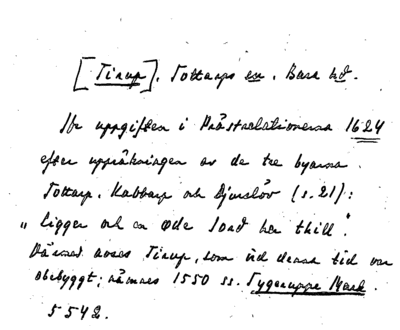 [Tirup]. Tottarps sn. Bara hd.
Jfr uppgiften i Prästrelationerna 1624
efter uppräkningen av de tre byarna
Tottarp, Kabbarp och Djurslöv (s. 21):
"ligger och en øde Jord her thill".
Därmed avses Tirup, som vid denna tid var
obebyggt; nämnes 1550 ss. Tygeruppe Mark.
5542.